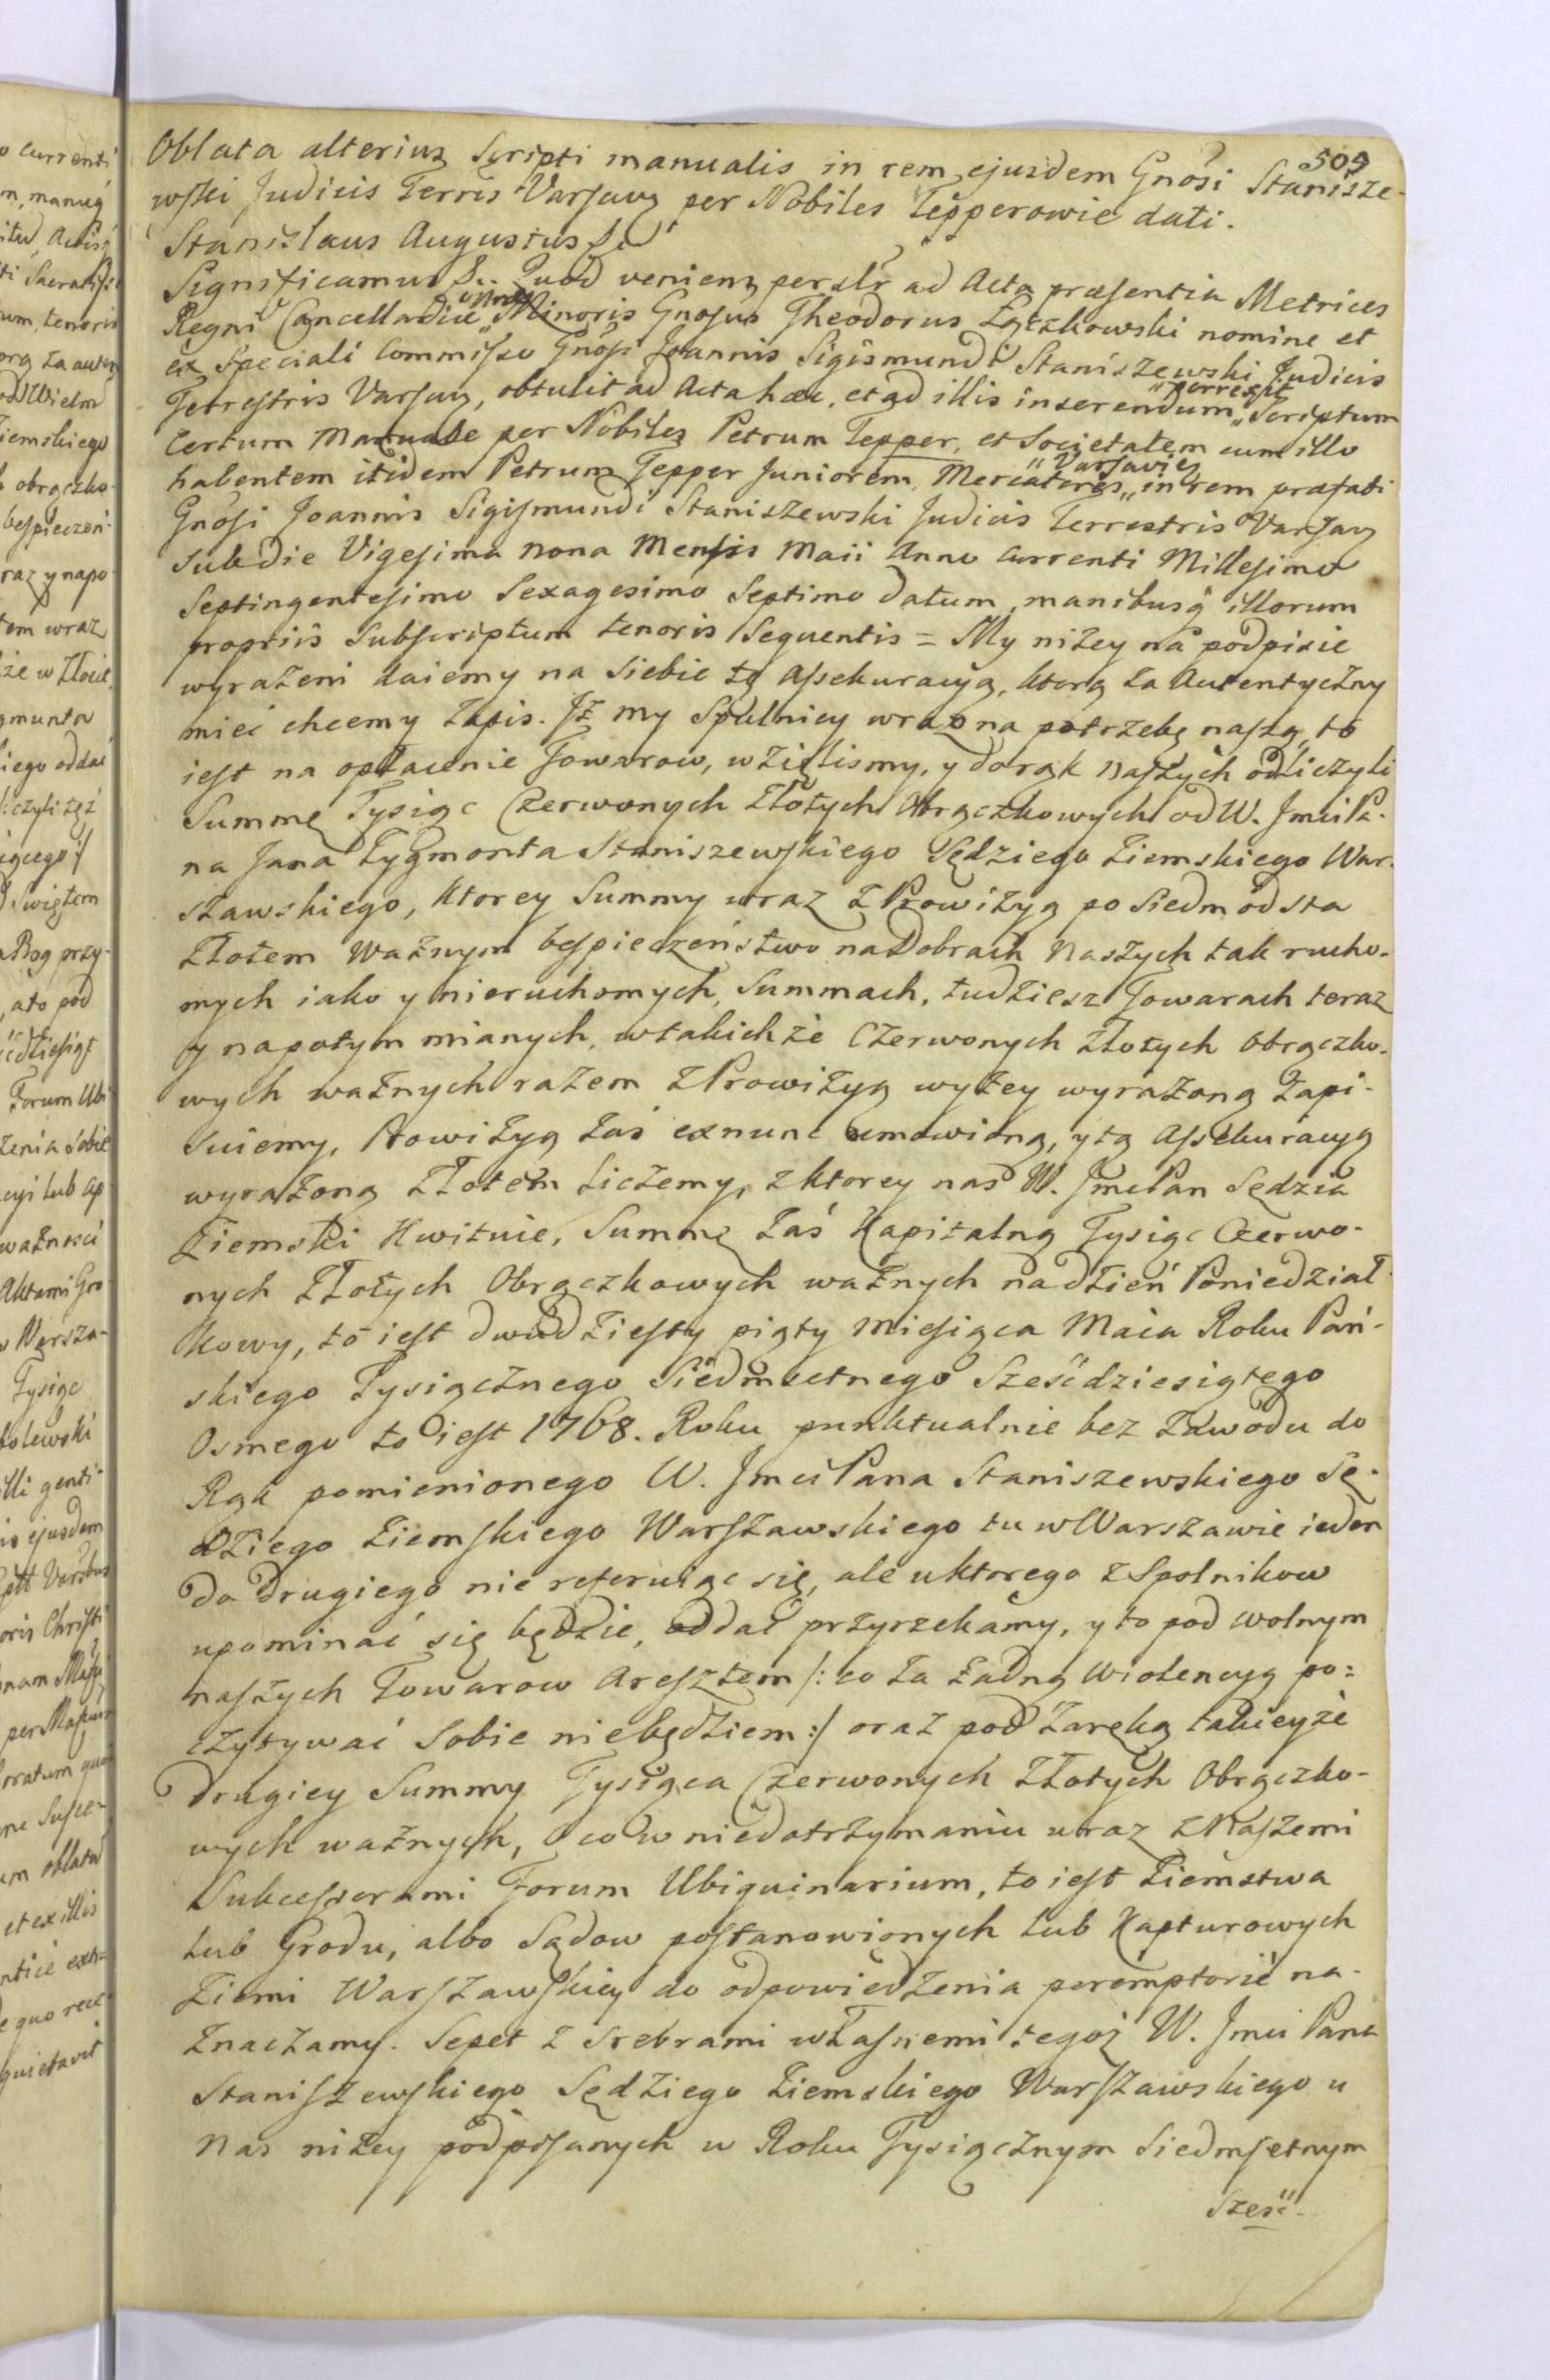 509
Oblata alterius Scripti manualis in rem ejusdem Gnosi Stanisze-
wski Judicis Terris Varsavz per Nobiles Tepperowie dati.
Stanislaus Augustus &c
Significamus &.. Quod veniens perslr ad Acta praesentia Metrices
Regni Cancellariae Minoris Gnosus Theodorus Łączkowski nomine et
ex Speciali Commisso Gnosi Joannis Sigismundi Staniszewski Judicis
Terrestris Varsavz, obtulit ad Acta haec, et ad illis inserendum „porrexit„ Scriptum
Certum Manuale per Nobiles Petrum Tepper, et Societatem cum illo
habentem itidem Petrum Tepper Juniorem, Mercatores „Varsavies„ in rem praefati
Gnosi Joannis Sigismundi Staniszewski Judicis Terrestris Varsavz
sub die Vigesima nona Mensis Maii Anno Currenti Millesimo
Septingentesimo Sexagesimo Septimo datum, manibusq illorum
propriis Subscriptum tenoris Sequentis = My niżey na podpisie
wyrażeni daiemy na siebie tę Assekuracyą, ktorą za Autentyczny
mieć chcemy zapis. Jż my Spulnicy wraz na potrzebę naszą, to
iest na opłacenie Towarow, wzięlismy, y do rąk naszych odliczyli
Summę Tysiąc Czerwonych Złotych Obrączkowych od W. Jmci Pa-
na Jana Zygmonta Staniszewskiego Sędziego Ziemskiego War-
szawskiego, ktorey Summy wraz z Prowizyą po siedm od sta
Złotem ważnym bespieczeństwo na Dobrach naszych tak rucho-
mych iako y nieruchomych, Summach, tudziesz Towarach teraz
y napotym mianych, w takichże Czerwonych Złotych Obrączko-
wych ważnych razem z Prowizyą wyżey wyrażoną zapi-
suiemy, Prowizyą zaś exnunc umowioną, y tą Assekuracyą
wyrażoną Złotem liczemy, z ktorey nas W. Jmc Pan Sędzia
Ziemski Kwituie, Summę zaś Kapitalną Tysiąc Czerwo-
nych Złotych Obrączkowych ważnych na dzień Poniedział-
kowy, to iest dwudziesty piąty Miesiąca Maia Roku Pań-
skiego Tysiącznego Siedmsetnego Sześćdziesiątego
Osmego to iest 1768. Roku punktualnie bez zawodu do
Rąk pomienionego W. Jmci Pana Staniszewskiego Sę-
dziego Ziemskiego Warszawskiego tu w Warszawie ieden
do drugiego nie referuiąc się, ale u ktorego z Spolnikow
upominać się będzie, oddać przyrzekamy, y to pod wolnym
naszych Towarow Aresztem /: co za żadną Wiolencyą po=
czytywać sobie niebędziem :/ oraz pod zaręką takieyże
drugiey Summy Tysiąca Czerwonych Złotych Obrączko-
wych ważnych, o co w niedotrzymaniu wraz z Naszemi
Sukcessorami Forum Ubiquinarium, to iest Ziemstwa
lub Grodu, albo Sądow postanowionych lub Kapturowych
Ziemi Warszawskiey do odpowiedzenia peremptorie na-
znaczamy. Sepet z Srebrami własnemi tegoż W. Jmci Pana
Staniszewskiego Sędziego Ziemskiego Warszawskiego u
nas niżey podpisanych w Roku Tysiącznym Siedmsetnym
Sześć-